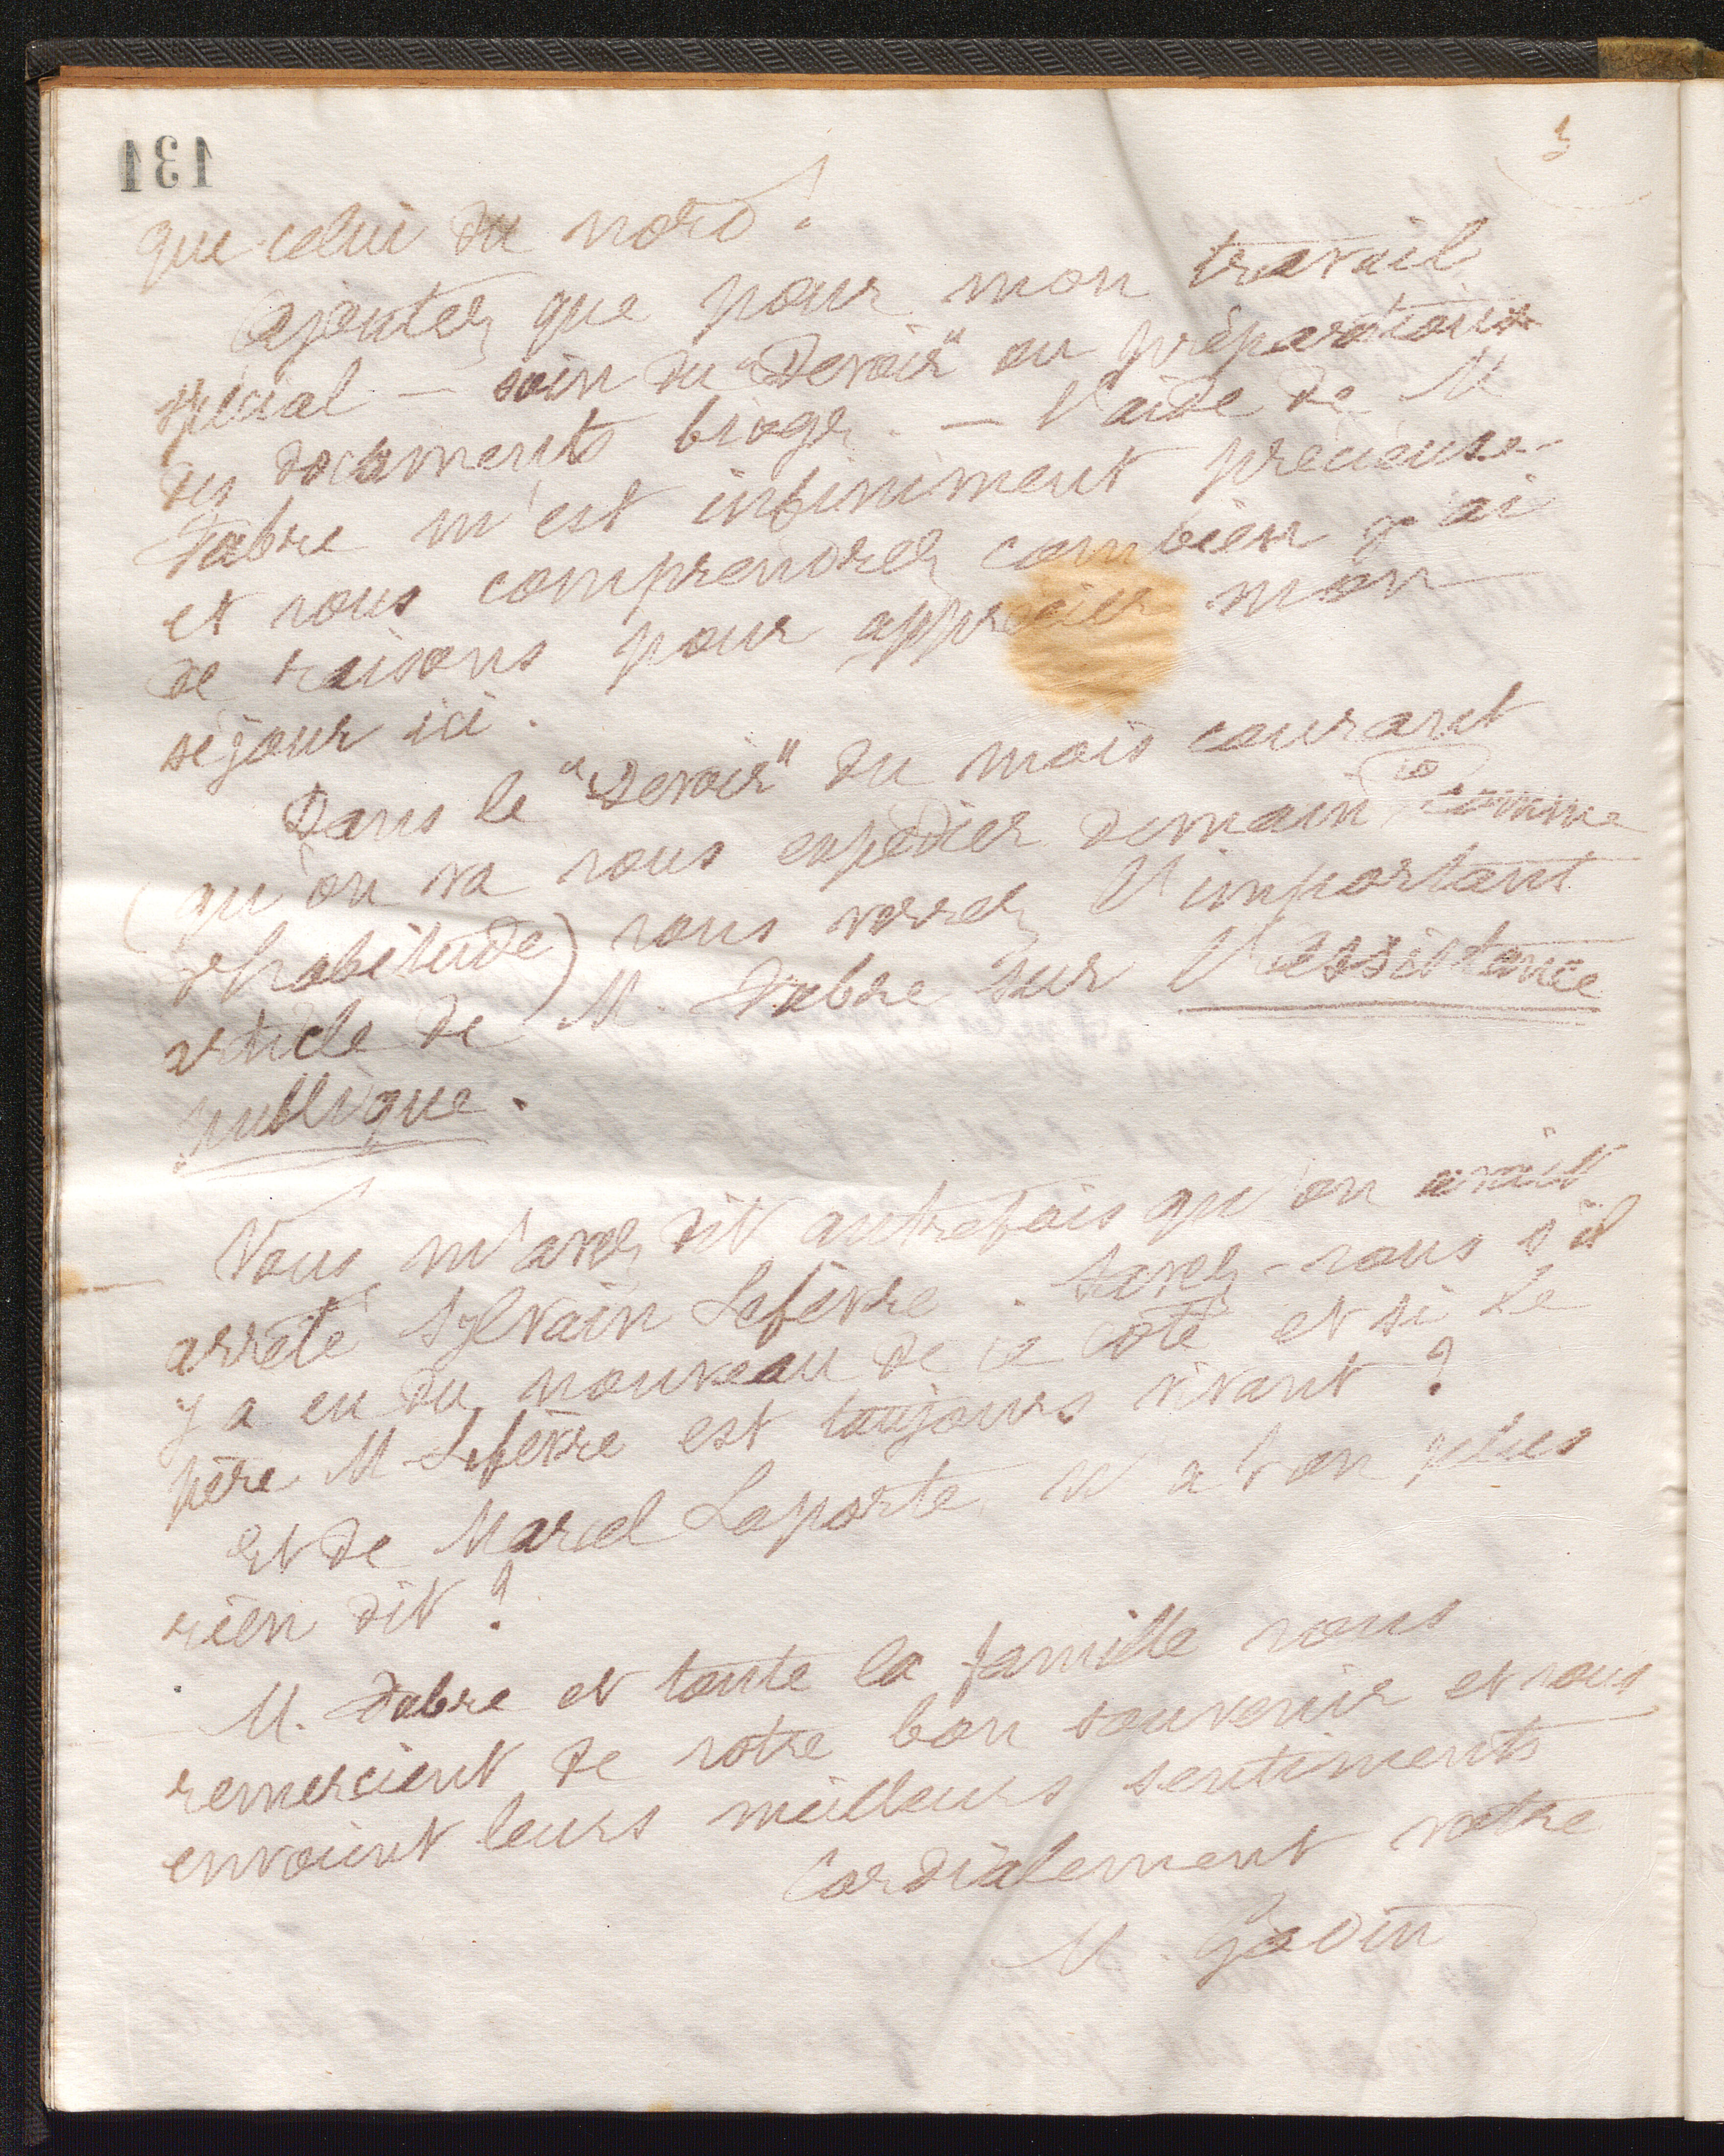 131
3
que celui du nord !
Ajoutez que pour mon travail
spécial — soin du "Devoir" ou préparation
des documents biogr. — l'aide de M
Fabre m'est infiniment précieuse
et vous comprendrez combien j'ai
de raisons pour apprécier mon
séjour ici.
Dans le "Devoir" du mois courant
(qu'on va vous expédier demain 10 comme
d'habitude) vous verrez l'important
article de M. Fabre sur l'assistance
publique.
Vous m'avez dit autrefois qu'on avait
arrêté Sylvain Lefèvre. Savez-vous s'il
y a eu du nouveau de ce côté et si le
père M Lefèvre est toujours vivant ?
Et de Marcel Laporte n'a t'on plus
rien dit ?
M. Fabre et toute la famille vous
remercient de votre bon souvenir et vous
envoient leurs meilleurs sentiments
Cordialement vôtre
M. Godin